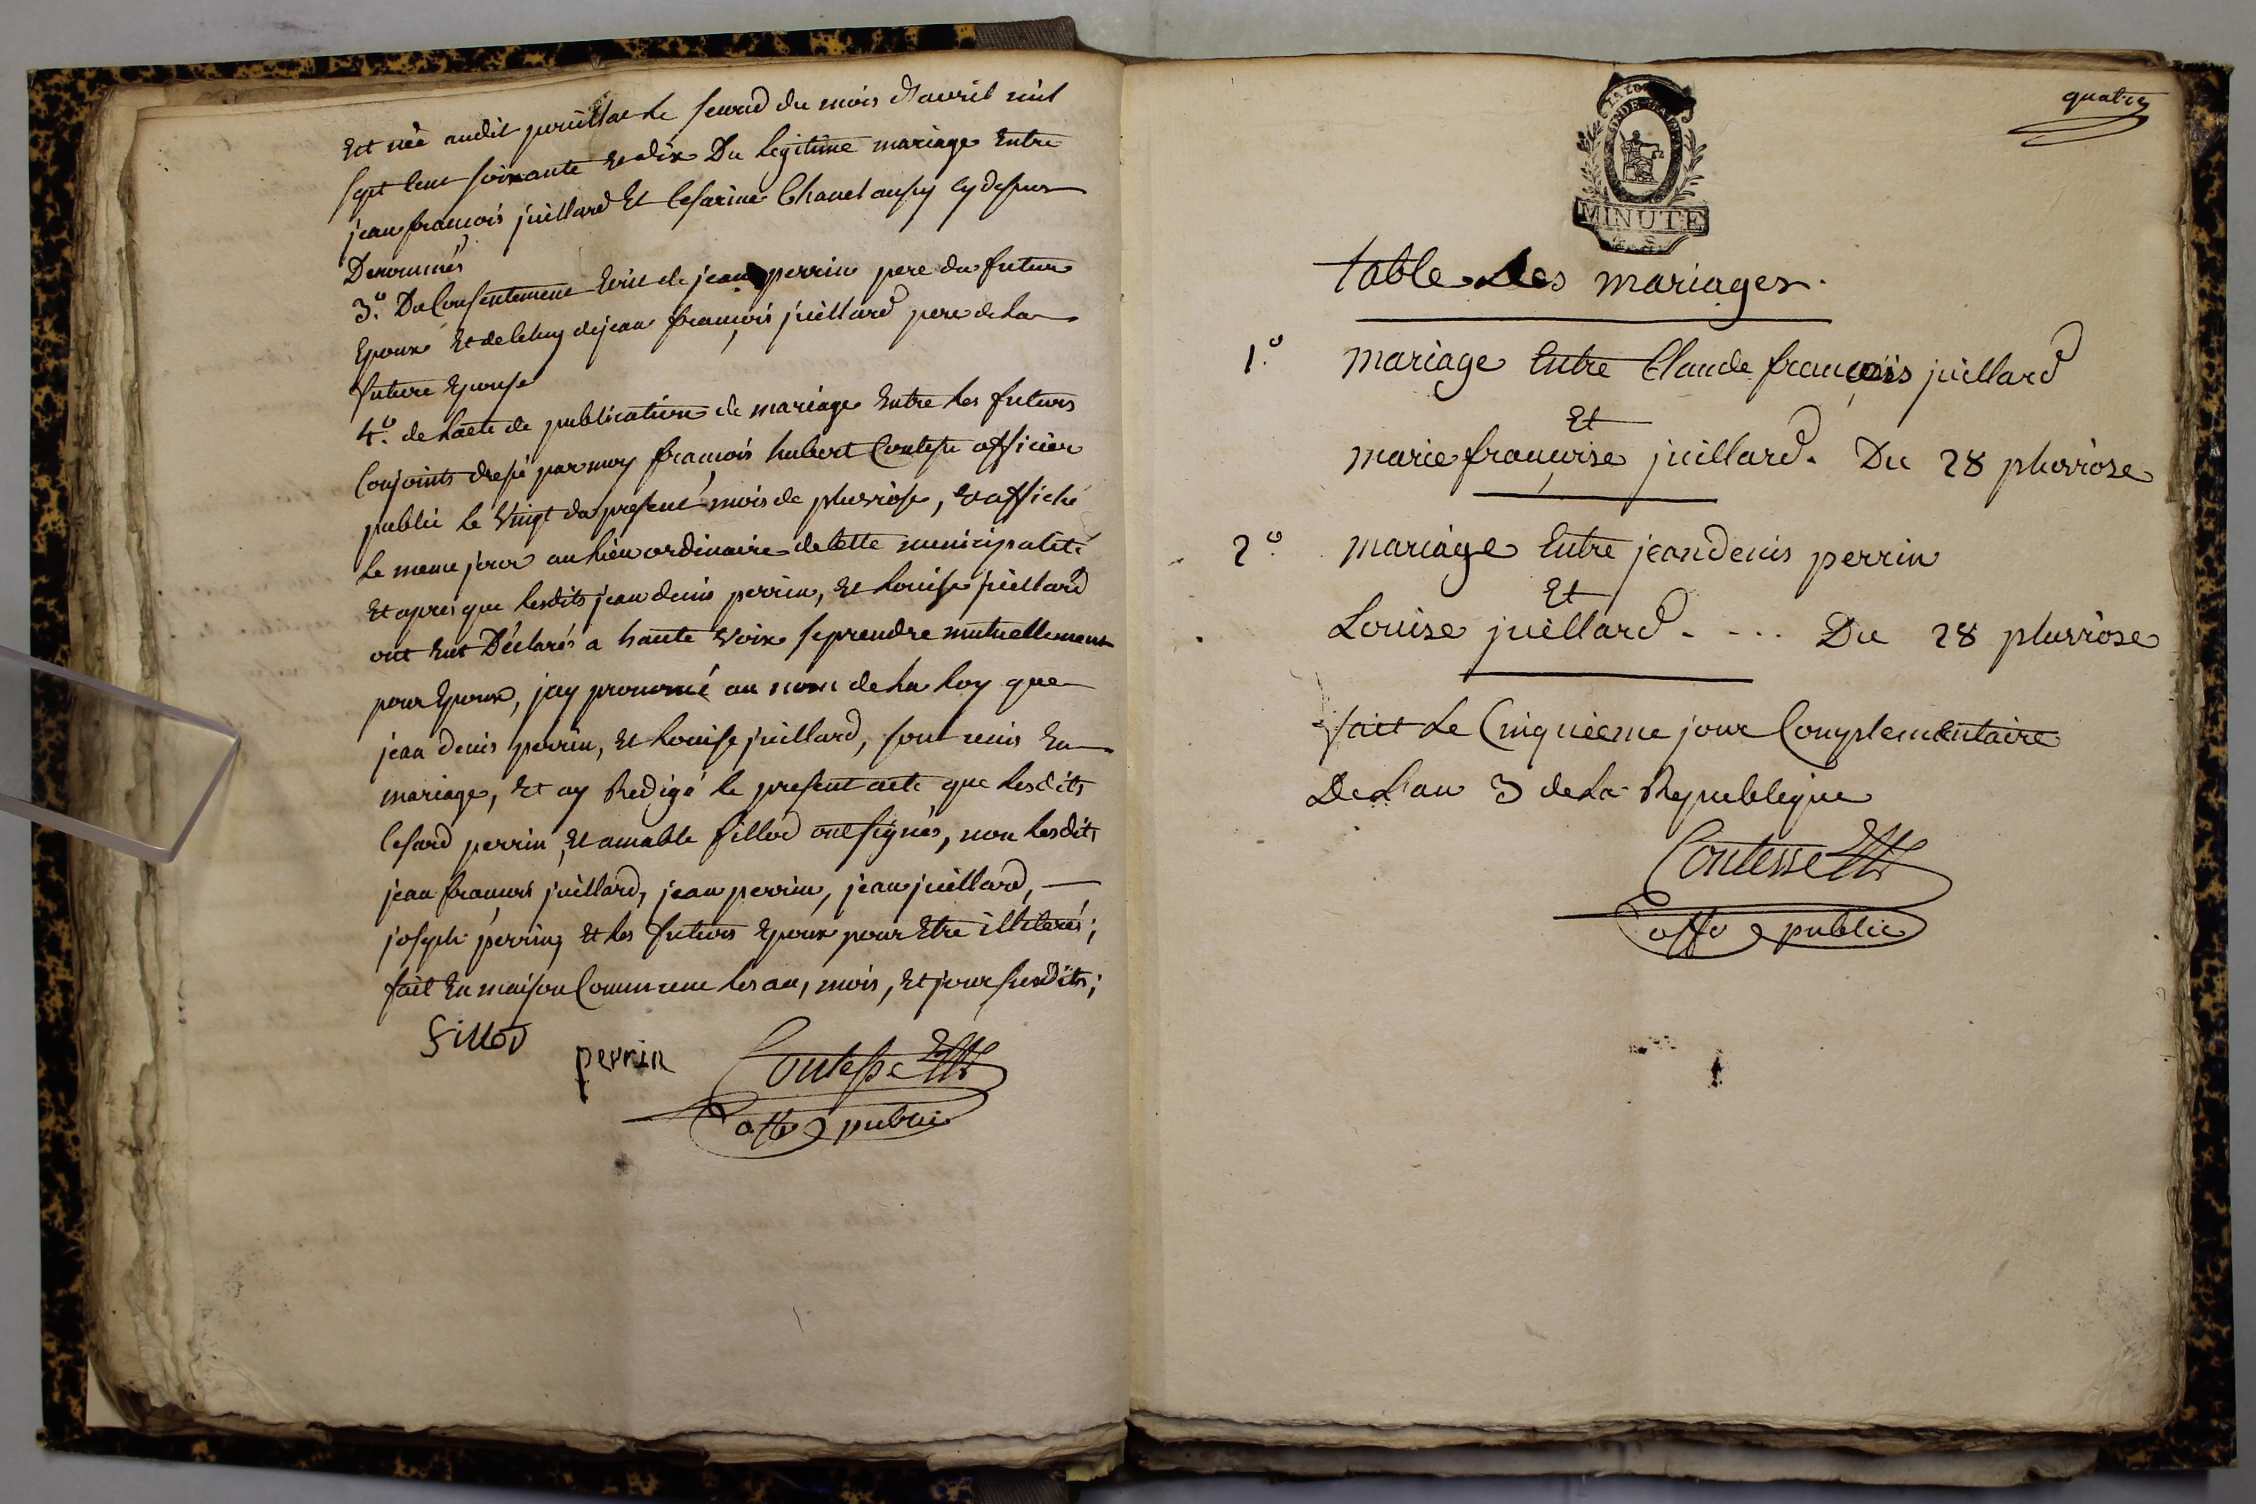 Est née audit juillac le second du mois d'avril mil
sept cent soixante et dix Du legitime mariage Entre
jean françois juillard Et Cesarine Chanel aussy cy dessus
Denommés
3.º Du Consentement Ecrit de jean perrin pere du futur
Epoux Et de celuy de jean françois juillard pere de la
future Epouse
4.º de l'acte de publication de mariage Entre les futurs
Conjoints dressé par moy françois hubert Contesse officier
public le Vingt du present mois de pluviose, et affiché
le meme jour au lieu ordinaire de cette municipalité
Et apres que lesdits jean denis perrin, Et Louise juillard
ont Eut Déclarés a haute voix se prendre mutuellement
pour Epoux, jay prononcé au nom de la loy que
jean denis perrin, Et Louise juillard, sont unis En
mariage, Et ay Redigé le present acte que lesdits
Cesard perrin, Et amable fillod ont signés, non lesdits
jean françois juillard, jean perrin, jean juillard,
joseph perrin, Et les futurs Epoux pour Etre illiterés;
fait En maison Commune les an, mois, Et jour susdits;
fillod perrin Contesse
off. public
quatre
LA LOI
MINUTE
table des mariages.
1.º mariage Entre Claude françois juillard
Et
marie françoise juillard. Du 28 pluviose
2.º mariage Entre jean denis perrin
Et
Louise juillard. - ... Du 28 pluviose
fait Le Cinquieme jour Complementaire
De L'an 3 de La Republique
Contesse
off. public